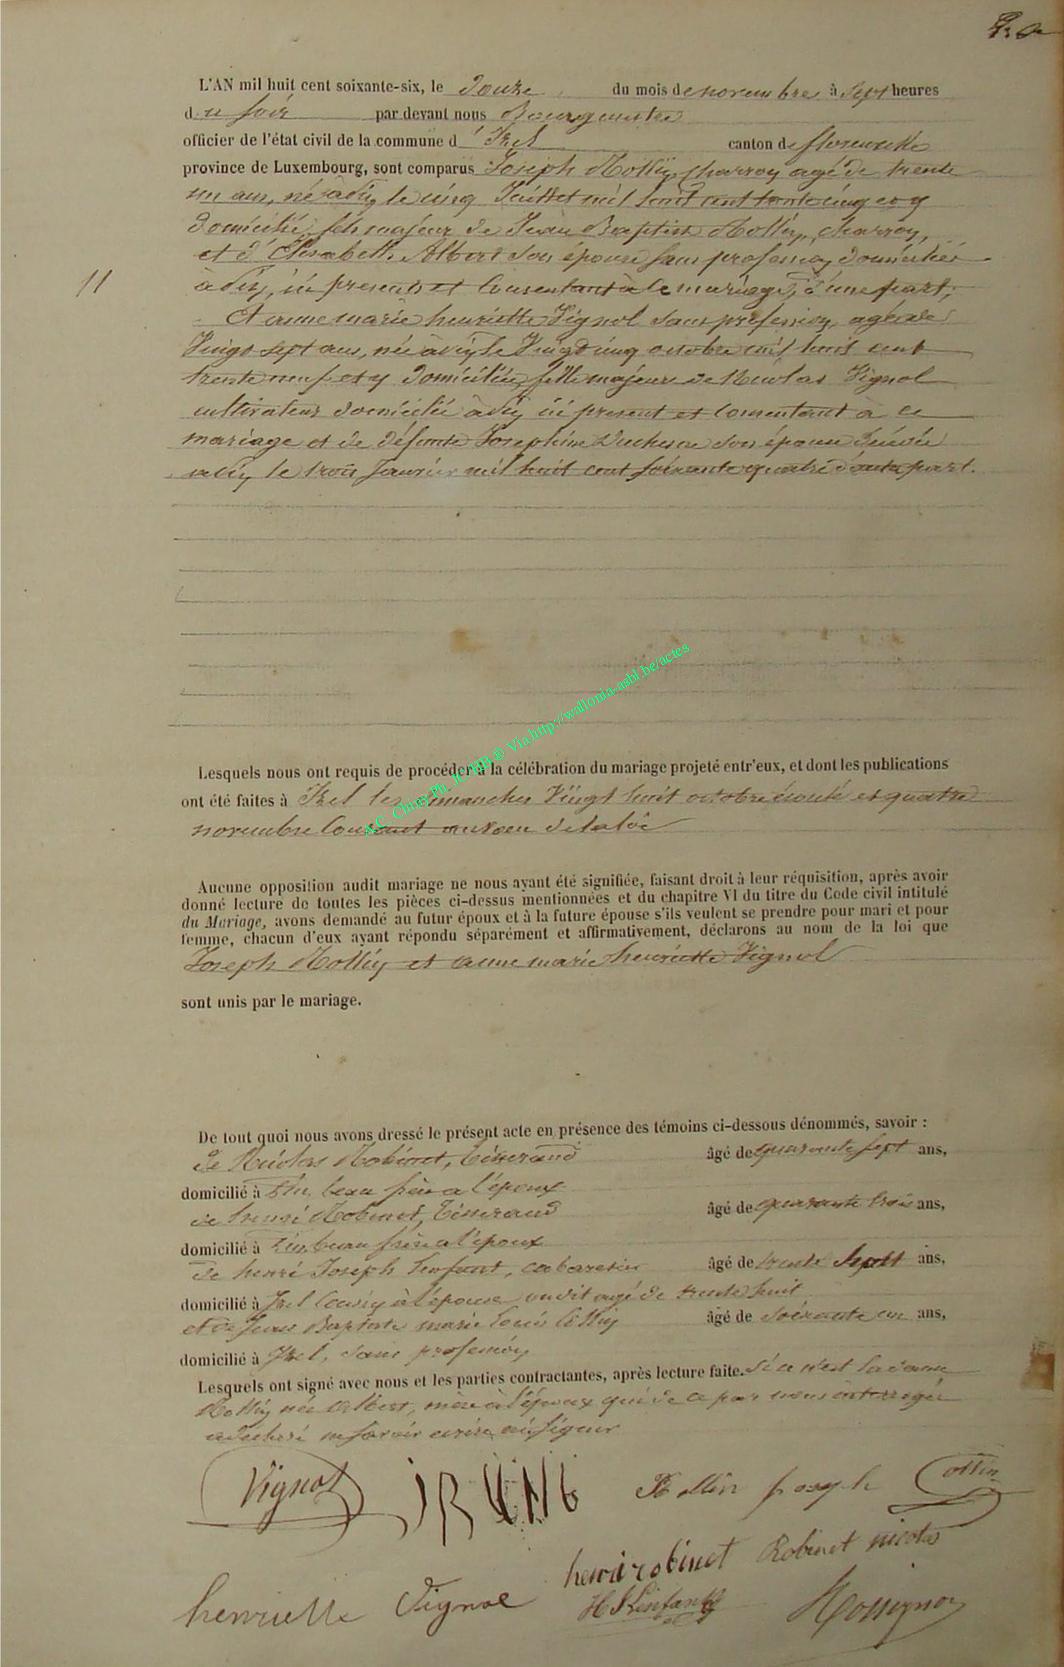 L'AN mil huit cent soixante-six, le douze du mois de novembre à sept heures
du soir par devant nous Bourgmestre
officier de l'état civil de la commune d'Izel canton de florenville
province de Luxembourg, sont comparus Joseph Mollin charron agé de trente
un ans, né le cinq Juillet mil huit cent trente cinq et y
domicilié, fils majeur de Jean Baptiste charron,
et d'Elisabeth Albert son épouse sans profession domiciliés
11
à ici presents et Consentant à ce mariage, d'une part,
Et anne marie henriette Vignol sans profession, agée de
Vingt sept ans, née à le Vingt cinq octobre mil huit cent
trente neuf et y domiciliée, fille majeure de Nicolas Vignol
cultivateur domicilié à ici present et Consentant à ce
mariage et de défunte Josephine Duchesne son épouse décédée
le trois Janvier mil huit cent soixante quatre d'autre part.
Lesquels nous ont requis de procéder à la célébration du mariage projeté entr'eux, et dont les publications
ont été faites à Izel les dimanches Vingt huit octobre écoulé et quatre
novembre Courant au voeu de la loi
A.C. Chiny Ph. Via http://wallonia-asbl.be/actes
Aucune opposition audit mariage ne nous ayant été signifiée, faisant droit à leur réquisition, après avoir
donné lecture de toutes les pièces ci-dessus mentionnées et du chapitre VI du titre du Code civil intitulé
du Mariage, avons demandé au futur époux et à la future épouse s'ils veulent se prendre pour mari et pour
femme, chacun d'eux ayant répondu séparément et affirmativement, déclarons au nom de la loi que
Joseph et anne marie henriette Vignol
sont unis par le mariage.
De tout quoi nous avons dressé le présent acte en présence des témoins ci-dessous dénommés, savoir :
de Nicolas Robinet, tisserand âgé de quarante sept ans,
domicilié à beau frère a l'époux
de henri Robinet, tisserand âgé de quarante trois ans,
domicilié à beau frère a l'époux
de henri Joseph cabaretier âgé de trente sept ans,
domicilié à Izel à l'épouse agé de trente huit
et de Jean Baptiste marie louis âgé de soixante un ans,
domicilié à Izel, sans profession
Lesquels ont signé avec nous et les parties contractantes, après lecture faite. Si ce n'est la dame
née albert, mère à l'époux qui de ce par nous interrogée
a déclaré ne savoir écrire ni signer
Vignol Joseph Collin
henri robinet Robinet nicolas
henriette Vignol Rossignon